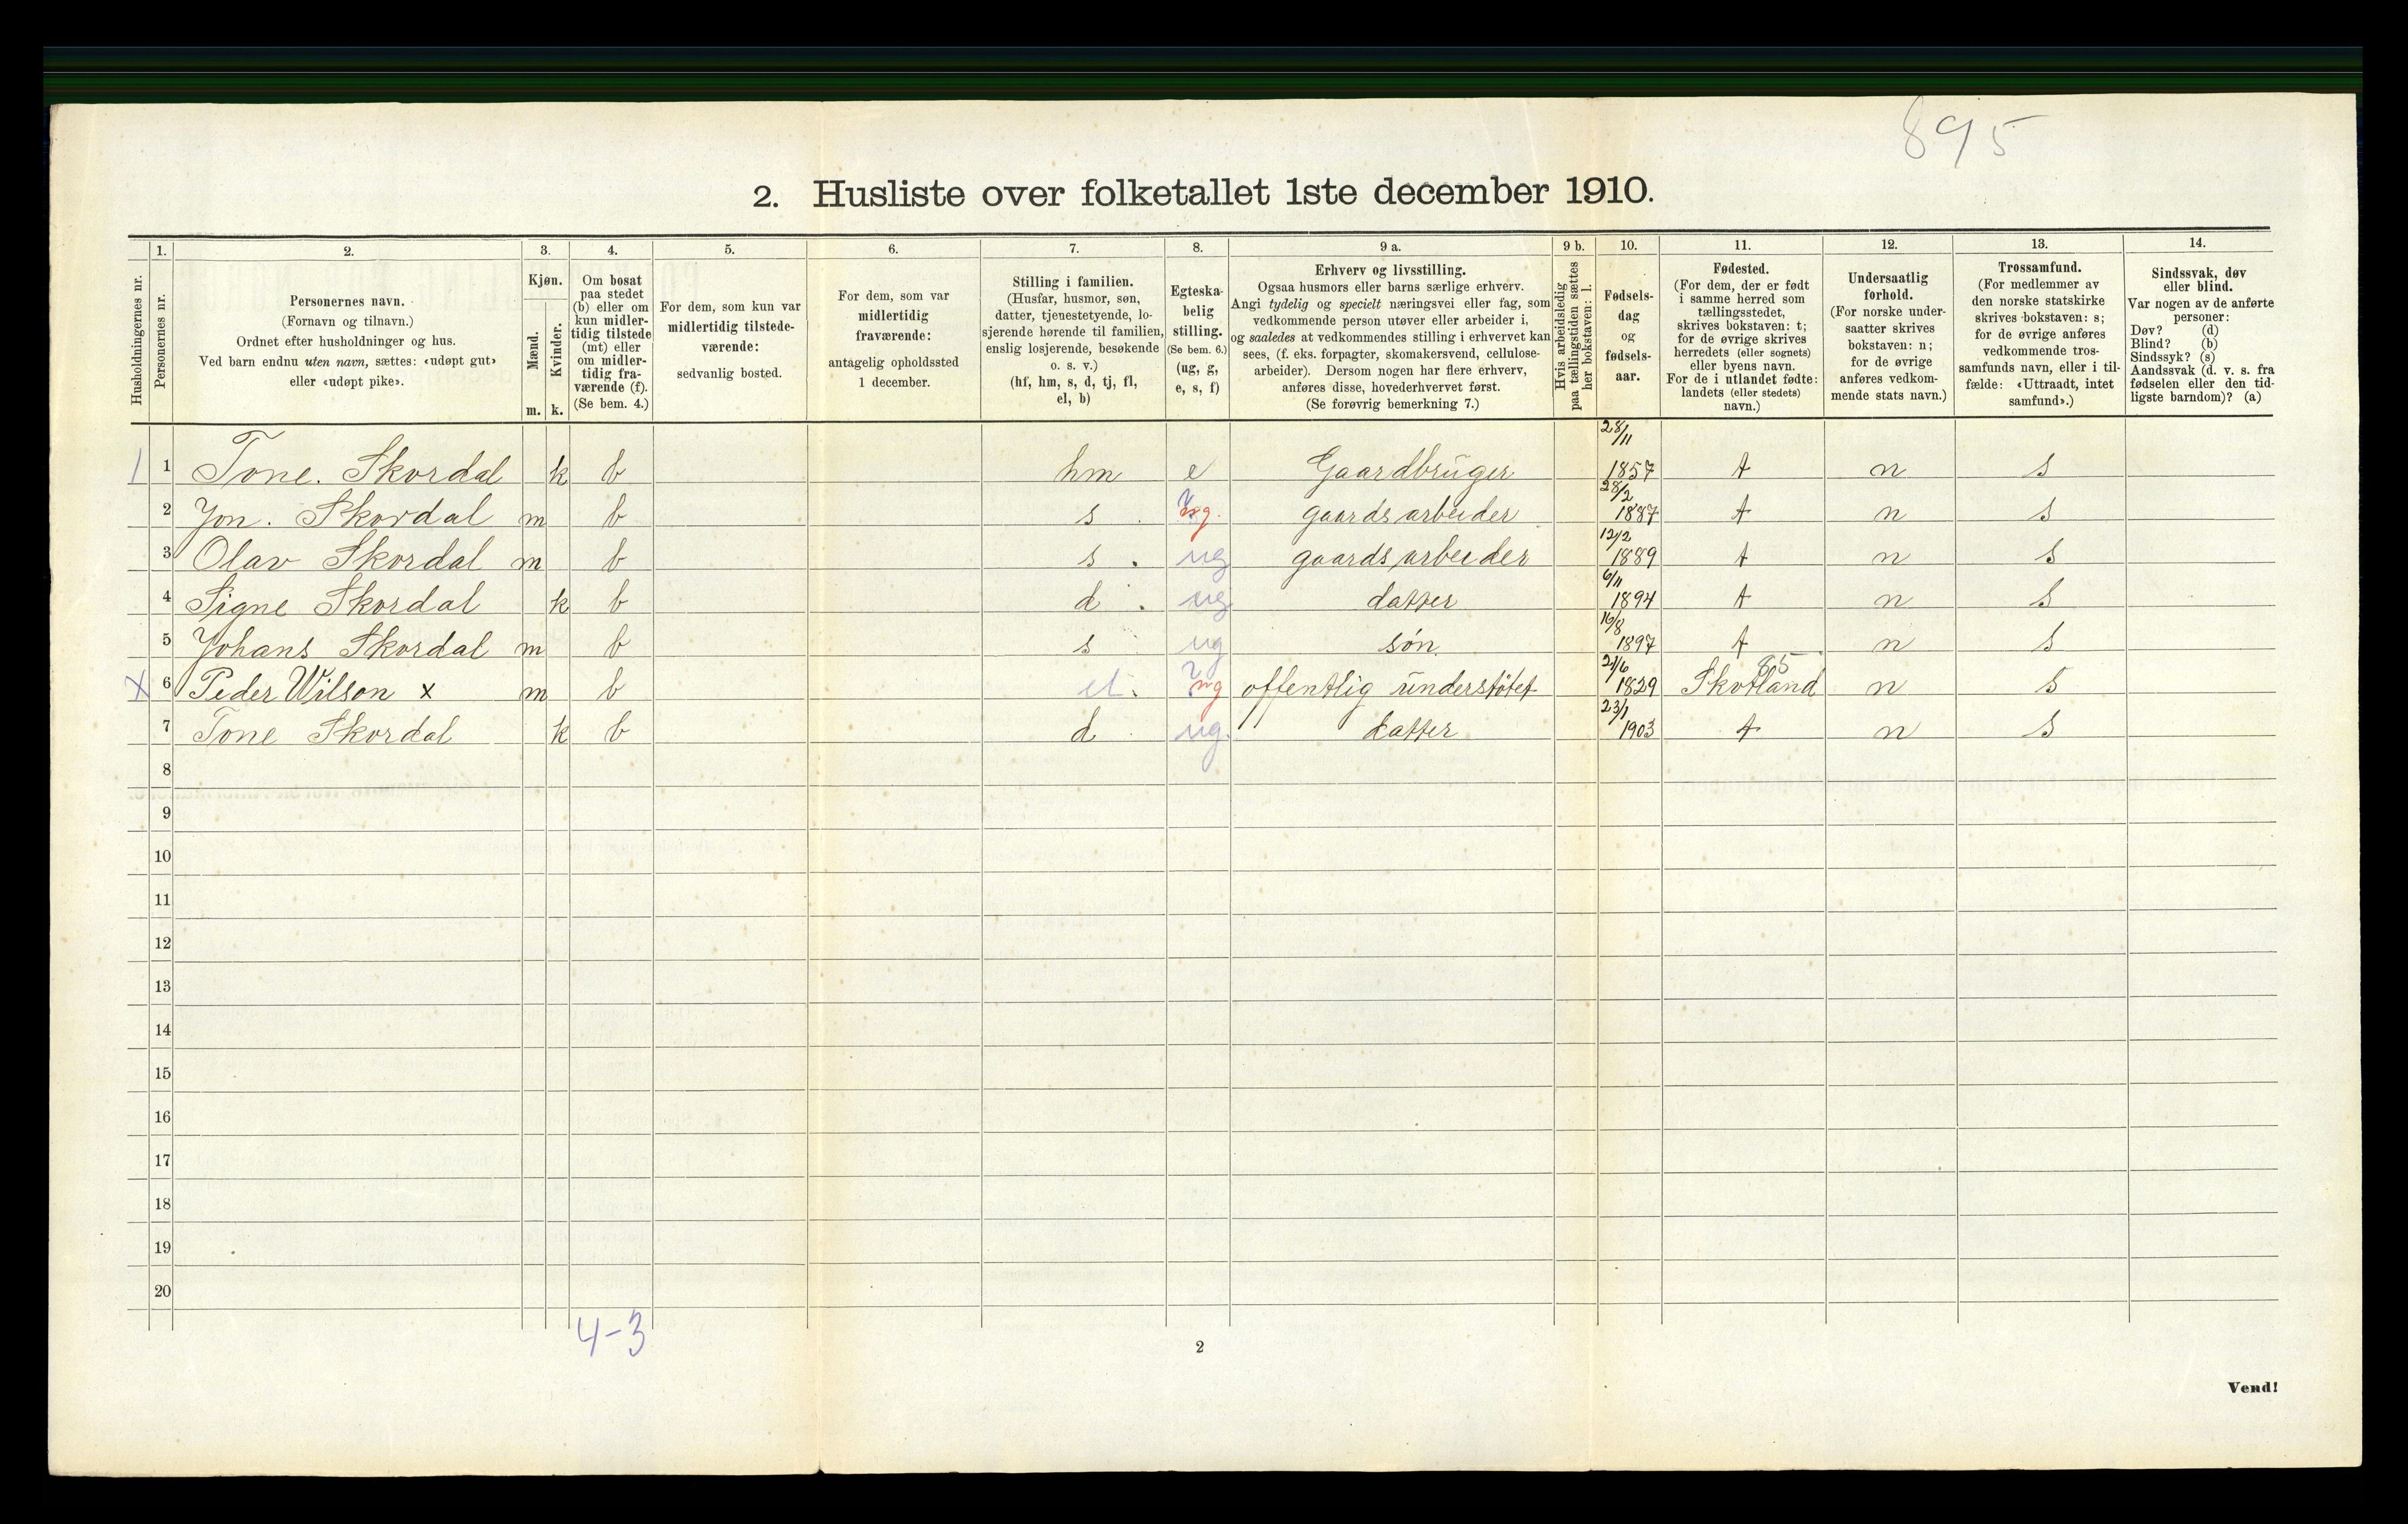 895
2. Husliste over folketallet 1ste december 1910.
Husholdningernes nr.
1. Personernes nr.
2. Personernes navn.
(Fornavn og tilnavn.)
Ordnet efter husholdninger og hus.
Ved barn endnu uten navn, sættes: «udøpt gut»
eller «udøpt pike».
3. Kjøn.
Mænd. m.
Kvinder. k.
4. Om bosat
paa stedet
(b) eller om
kun midler-
tidig tilstede
(mt) eller
om midler-
tidig fra-
værende (f).
(Se bem. 4.)
5. For dem, som kun var
midlertidig tilstede-
værende:
sedvanlig bosted.
6. For dem, som var
midlertidig
fraværende:
antagelig opholdssted
1 december.
7. Stilling i familien.
(Husfar, husmor, søn,
datter, tjenestetyende, lo-
sjerende hørende til familien,
enslig losjerende, besøkende
o. s. v.)
(hf, hm, s, d, tj, fl,
el, b)
8. Egteska-
belig
stilling.
(Se bem. 6.)
(ug, g,
e, s, f)
9 a. Erhverv og livsstilling.
Ogsaa husmors eller barns særlige erhverv.
Angi tydelig og specielt næringsvei eller fag, som
vedkommende person utøver eller arbeider i,
og saaledes at vedkommendes stilling i erhvervet kan
sees, (f. eks. forpagter, skomakersvend, cellulose-
arbeider). Dersom nogen har flere erhverv,
anføres disse, hovederhvervet først.
(Se forøvrig bemerkning 7.)
9 b. Hvis arbeidsledig
paa tællingstiden sættes
her bokstaven: l.
10. Fødsels-
dag
og
fødsels-
aar.
11. Fødested.
(For dem, der er født
i samme herred som
tællingsstedet,
skrives bokstaven: t;
for de øvrige skrives
herredets (eller sognets)
eller byens navn.
For de i utlandet fødte:
landets (eller stedets)
navn.)
12. Undersaatlig
forhold.
(For norske under-
saatter skrives
bokstaven: n;
for de øvrige
anføres vedkom-
mende stats navn.)
13. Trossamfund.
(For medlemmer av
den norske statskirke
skrives bokstaven: s;
for de øvrige anføres
vedkommende tros-
samfunds navn, eller i til-
fælde: «Uttraadt, intet
samfund».)
14. Sindssvak, døv
eller blind.
Var nogen av de anførte
personer:
Døv? (d)
Blind? (b)
Sindssyk? (s)
Aandssvak (d. v. s. fra
fødselen eller den tid-
ligste barndom)? (a)
1 1 Tone. Skordal k b hm e Gaardbrüger 28/11 1857 t n s
2 Jon. Skordal m b s ug. gaardsarbeider 28/2 1887 t n s
3 Olav Skordal m b s ug gaardsarbeider 12/2 1889 t n s
4 Signe Skordal k b d ug datter 6/11 1894 t n s
5 Johans Skordal m b s ug søn 16/8 1897 t n s
X 6 Peder Wilson x m b el. ug offentlig understötet 21/6 1829 Skotland 85 n s
7 Tone Skordal k b d ug. datter 23/1 1903 t n s
8
9
10
11
12
13
14
15
16
17
18
19
20
4-3
2
Vend!